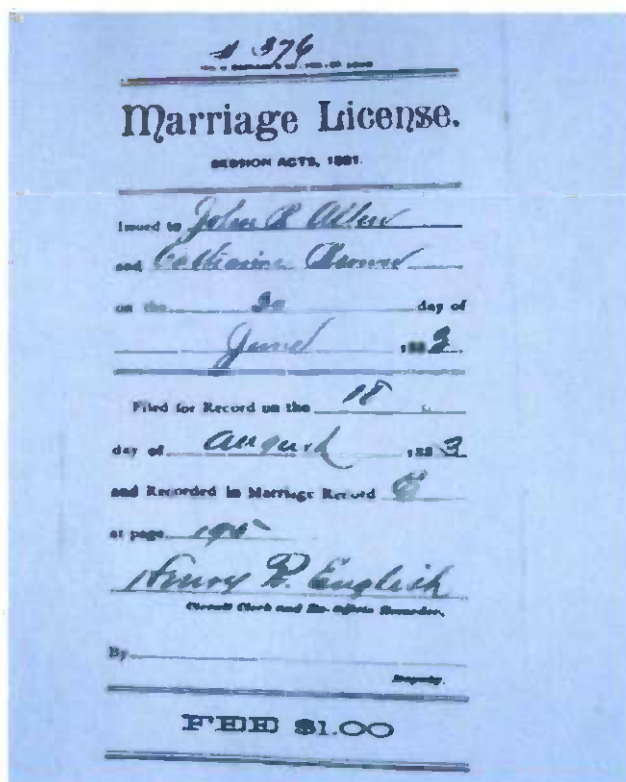 376
Marriage License.
SESSION ACTS, 1881.
Issued to John R Allen
and Catharine Brown
on the 30 day of
June 1883
Filed for Record on the 18
day of August 1883
and Recorded in Marriage Record
at page 195
Henry P. English
Circuit Clerk and Ex-officio Recorder.
By
Deputy.
FEE $1.00